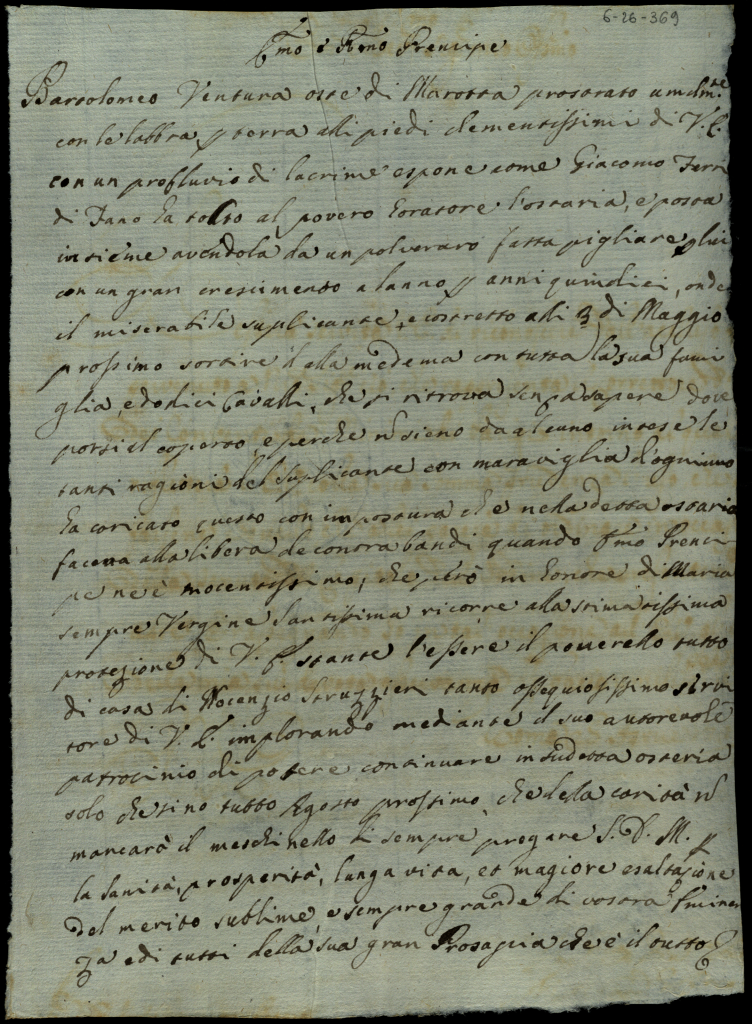 6-26-369
Emo e Rmo Prencipe
Bartolomeo Ventura oste di Marotta prostrato umilmte
con le labbra p terra alli piedi clementissimi di V. E.
con un profluvio di lacrime espone come Giacomo Ferri
di Fano ha tolto al povero horatore l'ostaria, e posta
insieme avendola da un polveraro fatta pigliare p lui
con un gran crescimento a lanno p anni quindici, onde
il miserabile suplicante, e costretto alli 3 di Maggio
prossimo sortire dalla medema con tutta la sua fami
glia, e dodici Cavalli, che si ritrova senza sapere dove
porsi al coperto, e perche n sieno da alcuno intese le
tanti ragioni del suplicante con maraviglia d'ogniuno
ha caricato questo con impostura che nella detta ostaria
faceva alla libera de contrabandi quando Emo Prenci
pe ne è inocentissimo, che però in honore di Maria
sempre Vergine Santissima ricorre alla stimatissima
protezione di V. E. stante l'essere il poverello tutto
di casa di Nocenzio Struzzieri tanto ossequiosissimo servi
tore di V. E. implorando mediante il suo autorevole
patrocinio di potere continuare in sudetta osteria
solo che sino tutto Agosto prossimo, che della carità n
mancarà il meschinello di sempre pregare S. D. M. p
la sanità, prosperità, lunga vita, et magiore esaltazione
del merito sublime, e sempre grande di vostra Eminen
za e di tutti della sua gran Prosapia che è il tutto